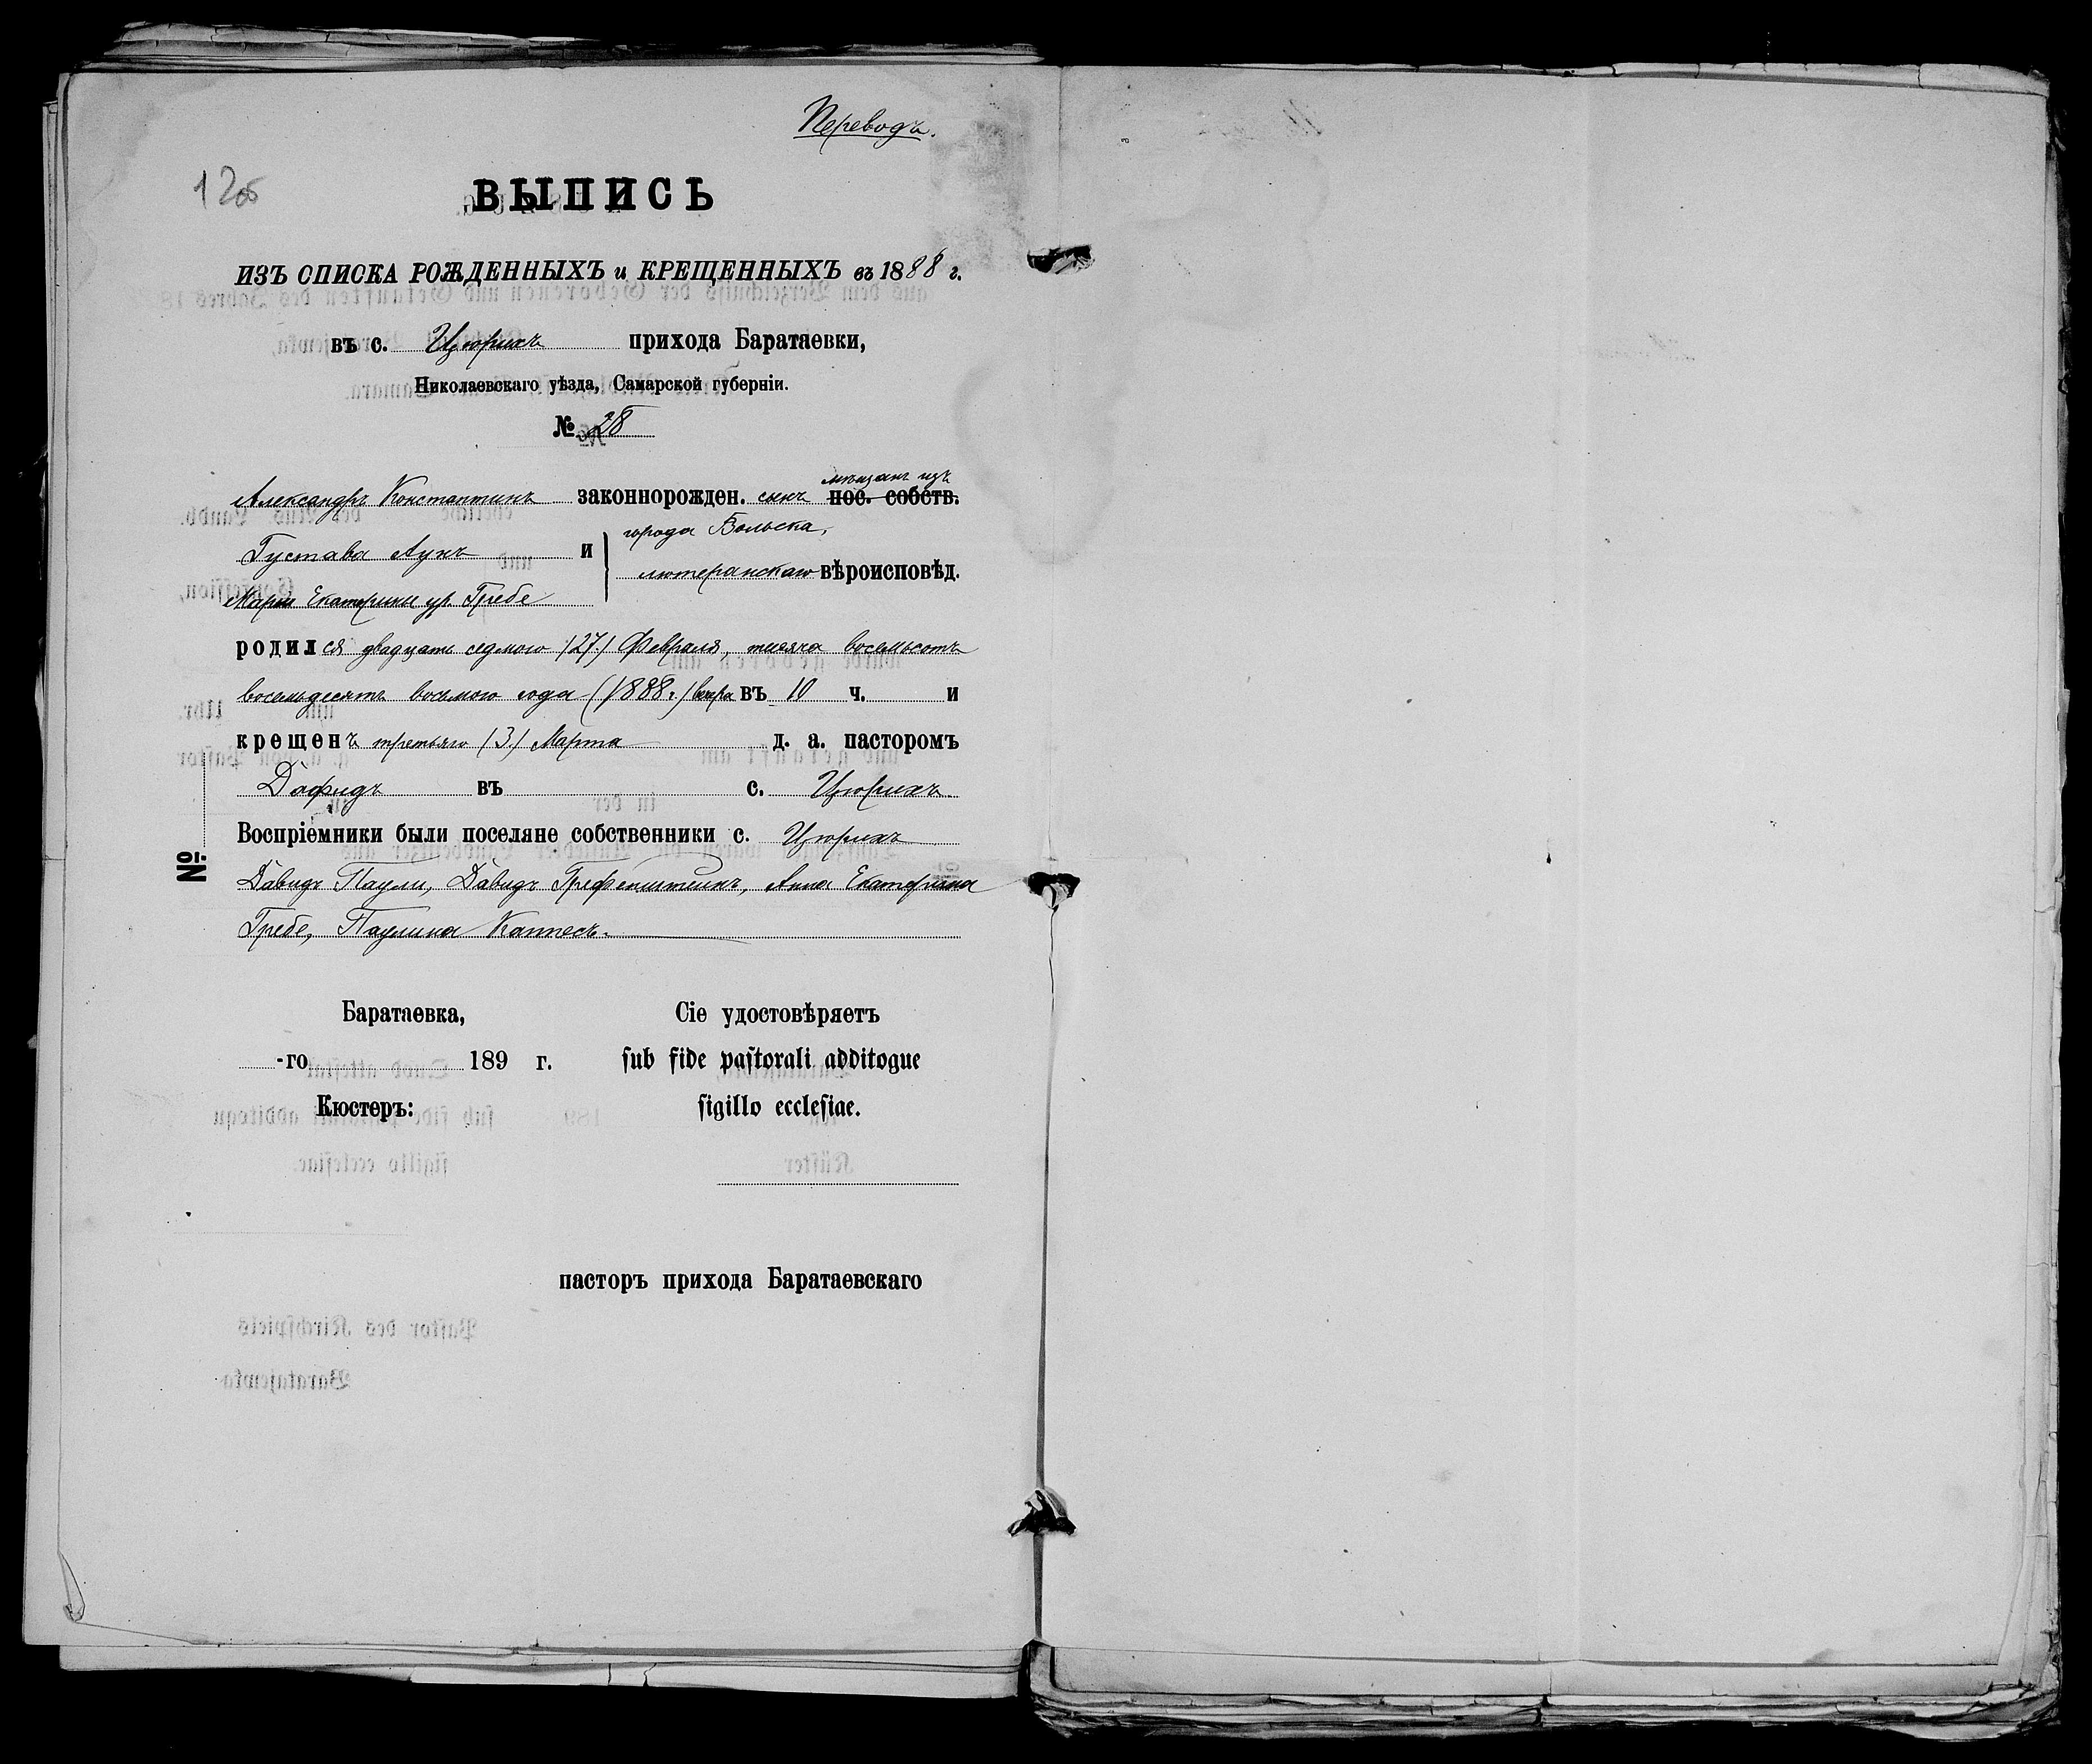 Переводъ.
120
ВЫПИСЬ
ИЗЪ СПИСКА РОЖДЕННЫХЪ и КРЕЩЕННЫХЪ въ 1888 г.
въ с. Цюрихъ прихода Баратаевки,
Николаевскаго уѣзда, Самарской губерніи.
№ 28
мѣщан. изъ
Александръ Константинъ законнорожден. сынъ пос. собств.
города Вольска,
Густава Аунъ и
лютеранскаго вѣроисповѣд.
Маріи Екатерины ур. Гребе
родился двадцать седьмого (27.) Февраля, тысяча восемьсотъ
восемьдесятъ восьмого года (1888 г.) вечера въ 10 ч. и
крещенъ третьяго (3.) Марта д. а. пасторомъ
Дафидъ въ с. Цюрихъ
Воспріемники были поселяне собственники с. Цюрихъ
Давидъ Паули, Давидъ Грефенштейнъ, Анна Екатерина
Гребе, Паулина Каппесъ.
№
Баратаевка,
-го 189 г.
Кюстеръ:
Сіе удостовѣряетъ
sub fide pastorali additogue
sigillo ecclesiae.
пасторъ прихода Баратаевскаго